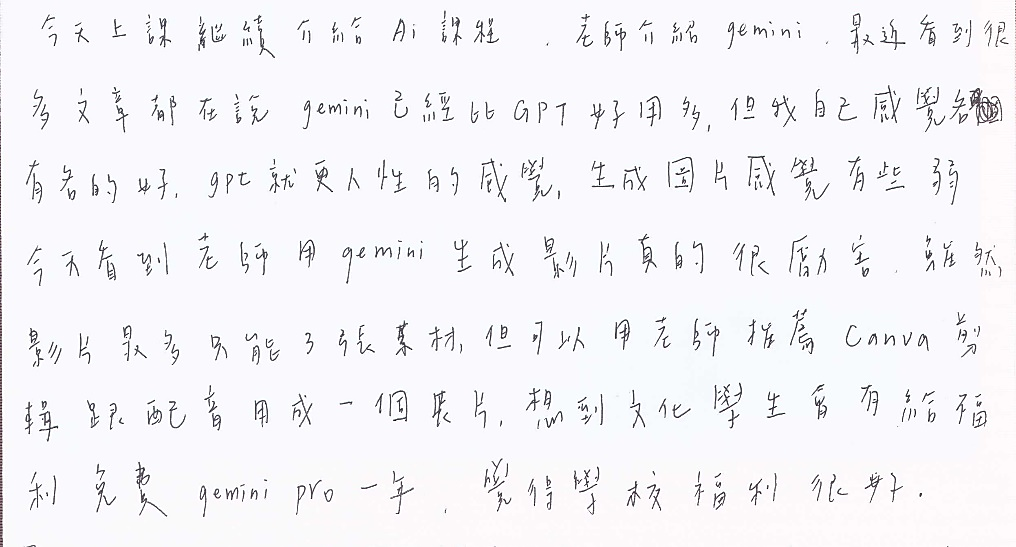 今天上課繼續介給Ai課程，老師介紹gemini，最近看到很
多文章都在說gemini已經比GPT好用多，但我自己感覺各
有各的好，gpt就更人性的感覺，生成圖片感覺有些弱
今天看到老師用gemini生成影片真的很厲害，雖然
影片最多只能3張素材，但可以用老師推薦Canva剪
輯跟配音用成一個長片，想到文化學生會有給福
利免費gemini pro一年，覺得學校福利很好。